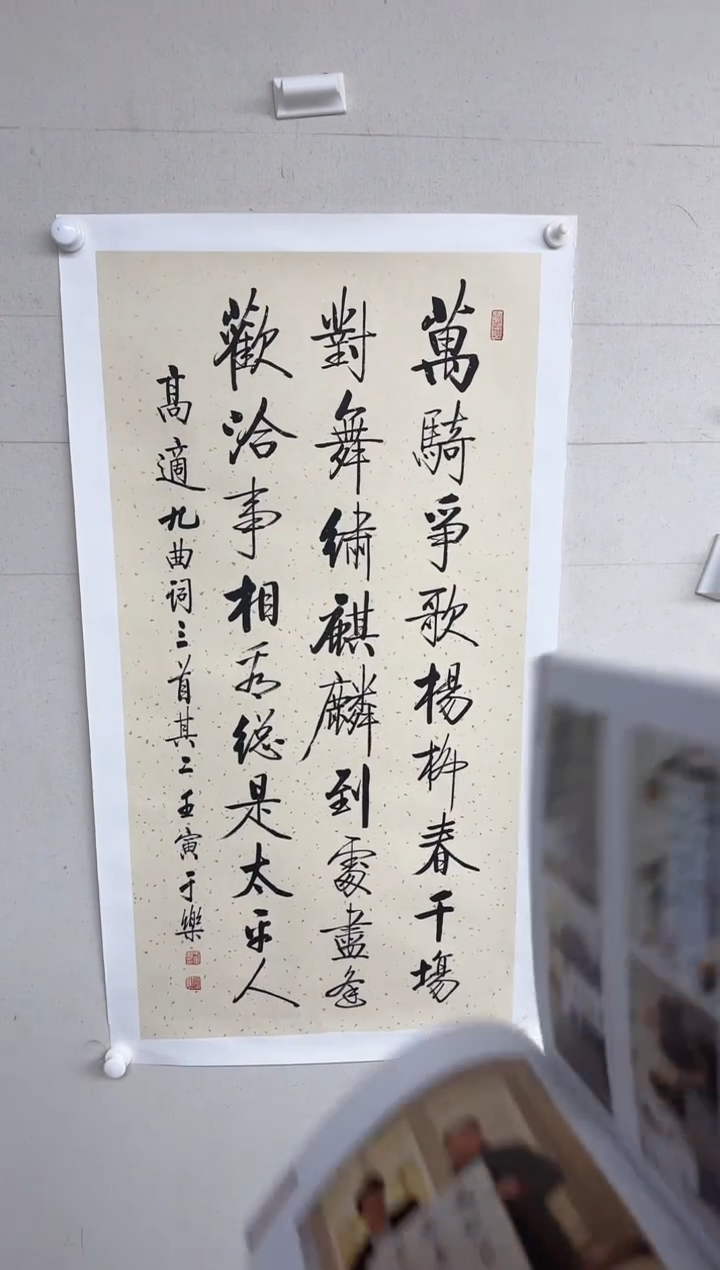 萬騎爭歌楊柳春千場
對舞繡麒麟到處盡逢
歡洽事相看總是太平人
高適九曲词三首其二壬寅于樂